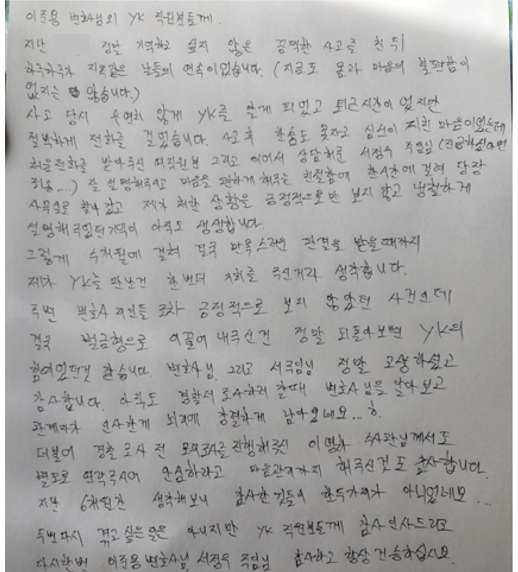 이준용 변호사님외 YK 직원분들께.
지난 정말 기억하고 싶지 않은 끔찍한 사고를 친 뒤
하루하루가 지옥같은 날들의 연속이었습니다. (지금도 몸과 마음의 불편함이
없지는 않습니다.)
사고 당시 우연히 알게 YK를 알게 되었고 퇴근시간이 었지만
절박하게 전화를 걸었습니다. 사고후 한숨도 못자고 심신이 지친 마음이었는데
처음전화를 받아주신 여직원분 그리고 이어서 상담해준 서정우 주임님
잘 설명해주시고 마음을 편하게 해주는 친절함에 한시간에 걸려 당장
사무실로 찾아 갔고 제가 처한 상황을 긍정적으로만 보지 않고 냉철하게
설명해주셨던 기억이 아직도 생생합니다.
그렇게 수개월에 걸쳐 결국 만족스러운 판결을 받을때까지
제가 YK를 만난건 한번더 기회를 주신거라 생각합니다.
주변 변호사 지인들 조차 긍정적으로 보지 않았던 사건인데
결국 벌금형으로 이끌어 내주신건 정말 되돌아보면 YK의
힘이었던것 같습니다 변호사님, 그리고 서주임님 정말 고생하셨고
감사합니다. 아직도 경찰서 조사하러 갈때 변호사님을 알아보고
관계자가 인사한게 뇌리에 강렬하게 남아있네요...
더불어 경찰 조사 전 모의조사를 진행해주신 이명화 수사관님께서도
별도로 연락주시어 안심하라고 사후관리까지 해주신것도 감사합니다.
지난 6개월간 생각해보니 감사한 것들이 한두가지가 아니었네요...
두번다시 겪고싶은일은 아니지만 YK 직원분들께 감사인사드리고
다시한번 이준용 변호사님, 서정우 주임님 감사하고 항상 건승하십시요.